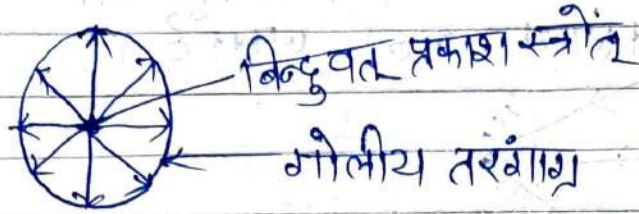 बिन्दुवत प्रकाश स्त्रोत
गोलीय तरंगाग्र